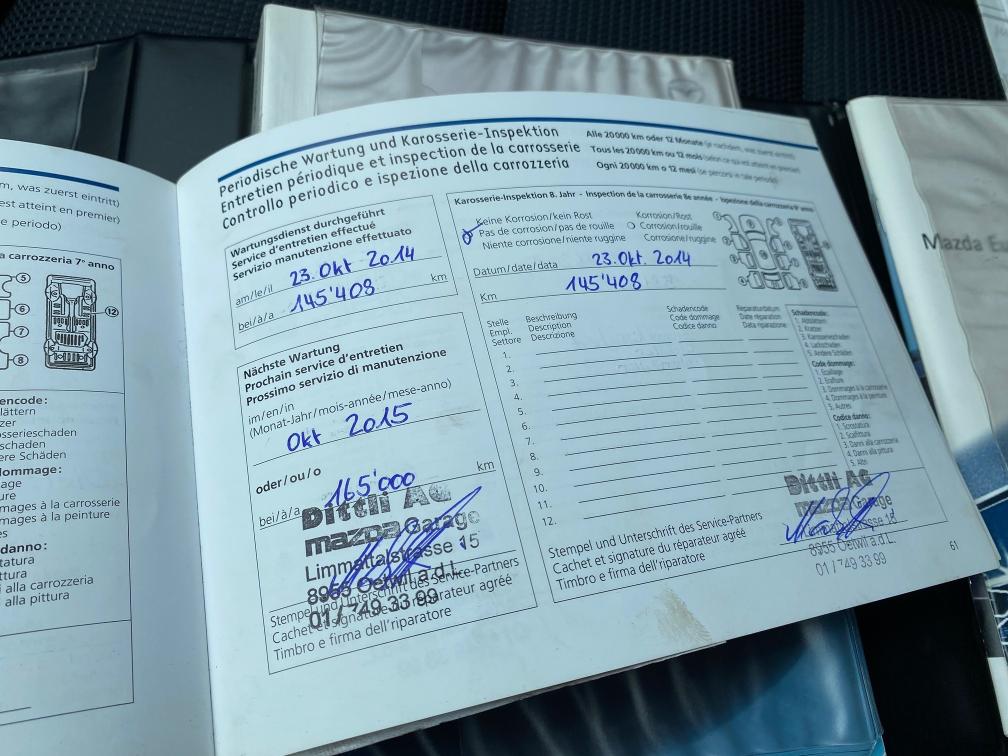 m, was zuerst eintritt)
est atteint en premier)
e periodo)
a carrozzeria 7° anno
5
6
12
7
8
encode:
lättern
zer
osserieschaden
schaden
ere Schäden
dommage:
age
ure
mages à la carrosserie
mages à la peinture
es
danno:
tatura
ttura
i alla carrozzeria
i alla pittura
Periodische Wartung und Karosserie-Inspektion
Entretien périodique et inspection de la carrosserie
Controllo periodico e ispezione della carrozzeria
Alle 20000 km oder 12 Monate (je nachdem, was zuerst eintritt)
Tous les 20000 km ou 12 mois (selon ce qui est atteint en premier)
Ogni 20000 km o 12 mesi (se percorsi in tale periodo)
Wartungsdienst durchgeführt
Service d'entretien effectué
Servizio manutenzione effettuato
am/le/il 23. Okt 2014
bei/à/a 145'408 km
Nächste Wartung
Prochain service d'entretien
Prossimo servizio di manutenzione
im/en/in
(Monat-Jahr/mois-année/mese-anno)
Okt 2015
oder/ou/o
bei/à/a 165'000 km
Dittli AG
mazda Garage
Limmattalstrasse 15
8955 Oetwil a.d.L.
01/749 33 99
Stempel und Unterschrift des Service-Partners
Cachet et signature du réparateur agréé
Timbro e firma dell'riparatore
Karosserie-Inspektion 8. Jahr - Inspection de la carrosserie 8e année - Ispezione della carrozzeria 8° anno
Keine Korrosion/kein Rost
Pas de corrosion/pas de rouille
Niente corrosione/niente ruggine
Korrosion/Rost
Corrosion/rouille
Corrosione/ruggine
Datum/date/data 23. Okt. 2014
Km 145'408
Stelle Beschreibung Schadencode Reparaturdatum
Empl. Description Code dommage Date réparation
Settore Descrizione Codice danno Data riparazione
1.
2.
3.
4.
5.
6.
7.
8.
9.
10.
11.
12.
Schadencode:
1. Abblättern
2. Kratzer
3. Karosserieschaden
4. Lackschaden
5. Andere Schäden
Code dommage:
1. Ecaillage
2. Eraflure
3. Dommages à la carrosserie
4. Dommages à la peinture
5. Autres
Codice danno:
1. Scrostatura
2. Scalfittura
3. Danni alla carrozzeria
4. Danni alla pittura
5. Altri
Stempel und Unterschrift des Service-Partners
Cachet et signature du réparateur agréé
Timbro e firma dell'riparatore
Dittli AG
mazda Garage
8955 Oetwil a.d.L.
01/749 33 99
61
Mazda E